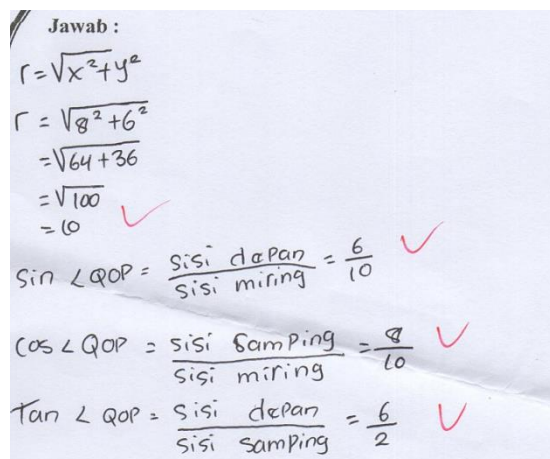 Jawab :
r = √x²+y²
r = √8²+6²
= √64+36
= √100
= 10
Sin ∠QOP = sisi depan / sisi miring = 6/10
Cos ∠QOP = sisi samping / sisi miring = 8/10
Tan ∠QOP = sisi depan / sisi samping = 6/2